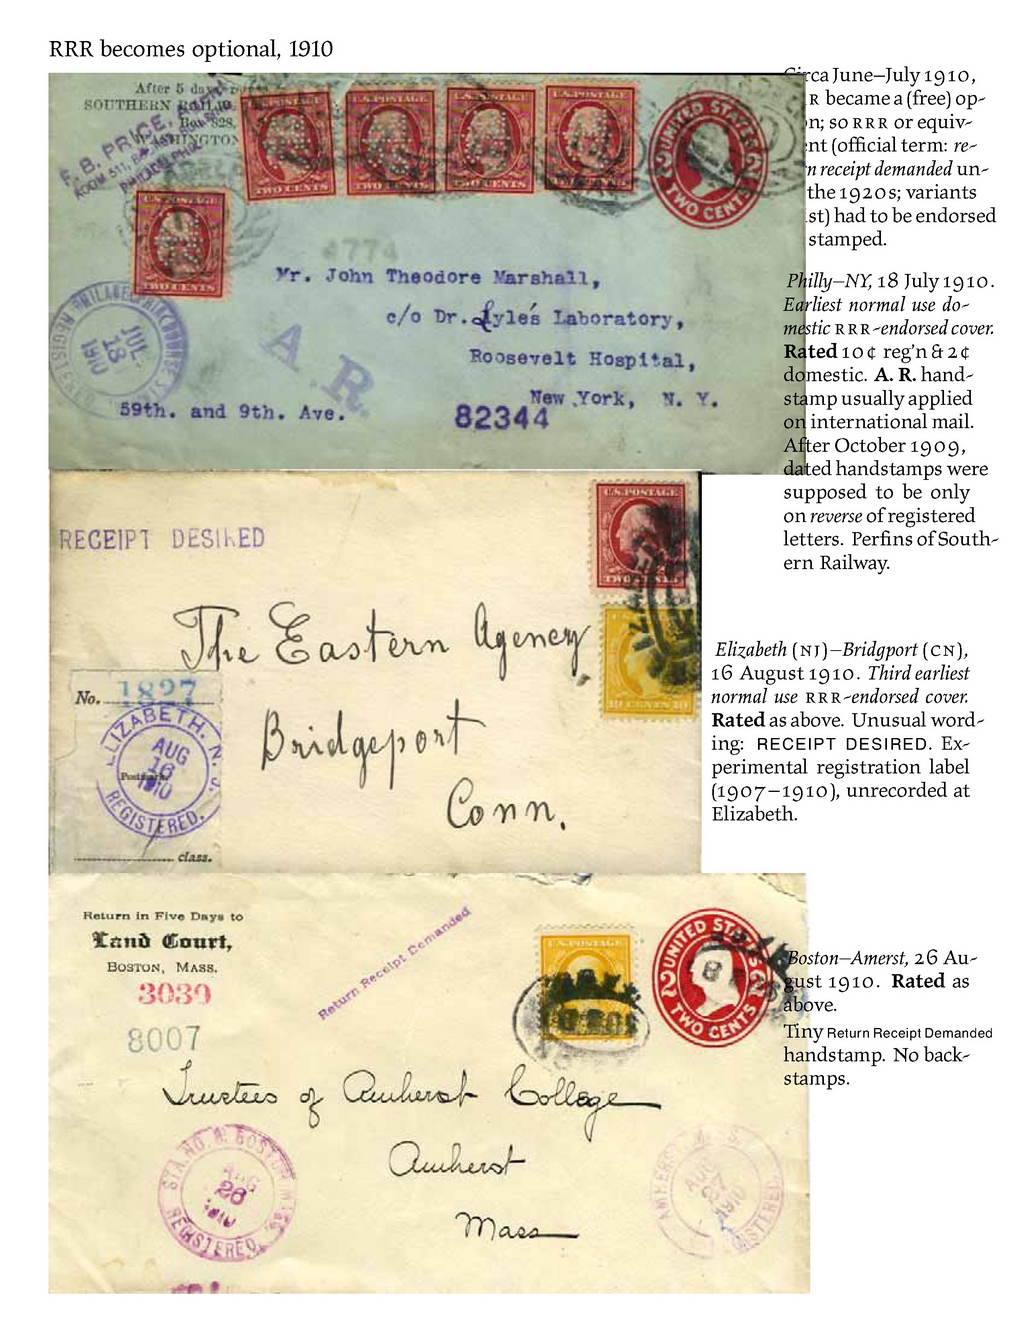 RRR becomes optional, 1910
Circa June–July 1910,
R became a (free) op-
n; so RRR or equiv-
nt (official term: re-
n receipt demanded un-
the 1920s; variants
st) had to be endorsed
stamped.
Philly–NY, 18 July 1910.
Earliest normal use do-
mestic RRR-endorsed cover.
Rated 10¢ reg'n & 2¢
domestic. A. R. hand-
stamp usually applied
on international mail.
After October 1909,
dated handstamps were
supposed to be only
on reverse of registered
letters. Perfins of South-
ern Railway.
After 5 days
SOUTHERN
Box 828,
WASHINGTON
F. B. PRICE,
ROOM 511,
PHILADELPHIA
U.S. POSTAGE
TWO CENTS
U.S. POSTAGE
TWO CENTS
U.S. POSTAGE
TWO CENTS
U.S. POSTAGE
TWO CENTS
UNITED STATES
2 2
TWO CENTS
U.S. POSTAGE
TWO CENTS
4774
Mr. John Theodore Marshall,
c/o Dr. Lyle's Laboratory,
Roosevelt Hospital,
New York, N. Y.
59th. and 9th. Ave.
A.R.
82344
JUL
18
1910
RECEIPT DESIRED
U.S. POSTAGE
TWO CENTS
10 CENTS 10
The Eastern Agency
Bridgeport
Conn.
No. 1827
ELIZABETH, N. J.
AUG
16
1910
Postmark
REGISTERED.
class.
Elizabeth (NJ)–Bridgport (CN),
16 August 1910. Third earliest
normal use RRR-endorsed cover.
Rated as above. Unusual word-
ing: RECEIPT DESIRED. Ex-
perimental registration label
(1907–1910), unrecorded at
Elizabeth.
Return in Five Days to
Land Court,
BOSTON, MASS.
3039
8007
Return Receipt Demanded
U.S. POSTAGE
UNITED STATES
2 2
TWO CENTS
Trustees of Amherst College
Amherst
Mass
STA. NO. BOSTON
AUG
26
1910
REGISTERED.
AMHERST, MASS.
AUG
27
1910
REGISTERED.
Boston–Amerst, 26 Au-
gust 1910. Rated as
above.
Tiny Return Receipt Demanded
handstamp. No back-
stamps.